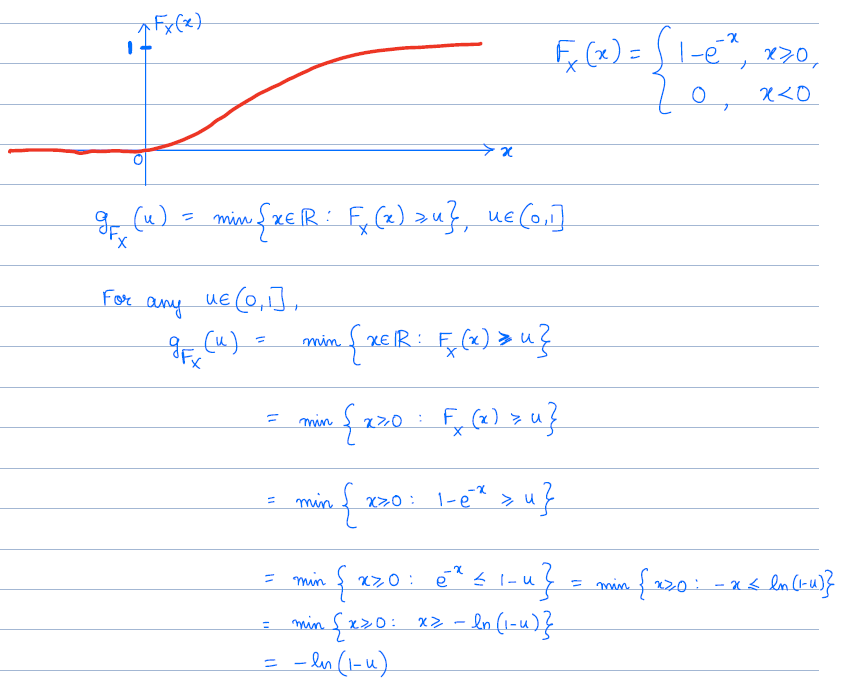 F_X(x)
1
0
x
F_X(x) = { 1-e^{-x}, x⩾0,
0 , x<0
g_{F_X}(u) = min{x∈ℝ : F_X(x) ⩾ u}, u∈(0,1]
For any u∈(0,1],
g_{F_X}(u) = min { x∈ℝ : F_X(x) ⩾ u}
= min { x⩾0 : F_X(x) ⩾ u}
= min { x⩾0 : 1-e^{-x} ⩾ u}
= min { x⩾0 : e^{-x} ≤ 1-u} = min { x⩾0 : -x ≤ ln(1-u)}
= min { x⩾0 : x⩾ -ln(1-u)}
= -ln(1-u)